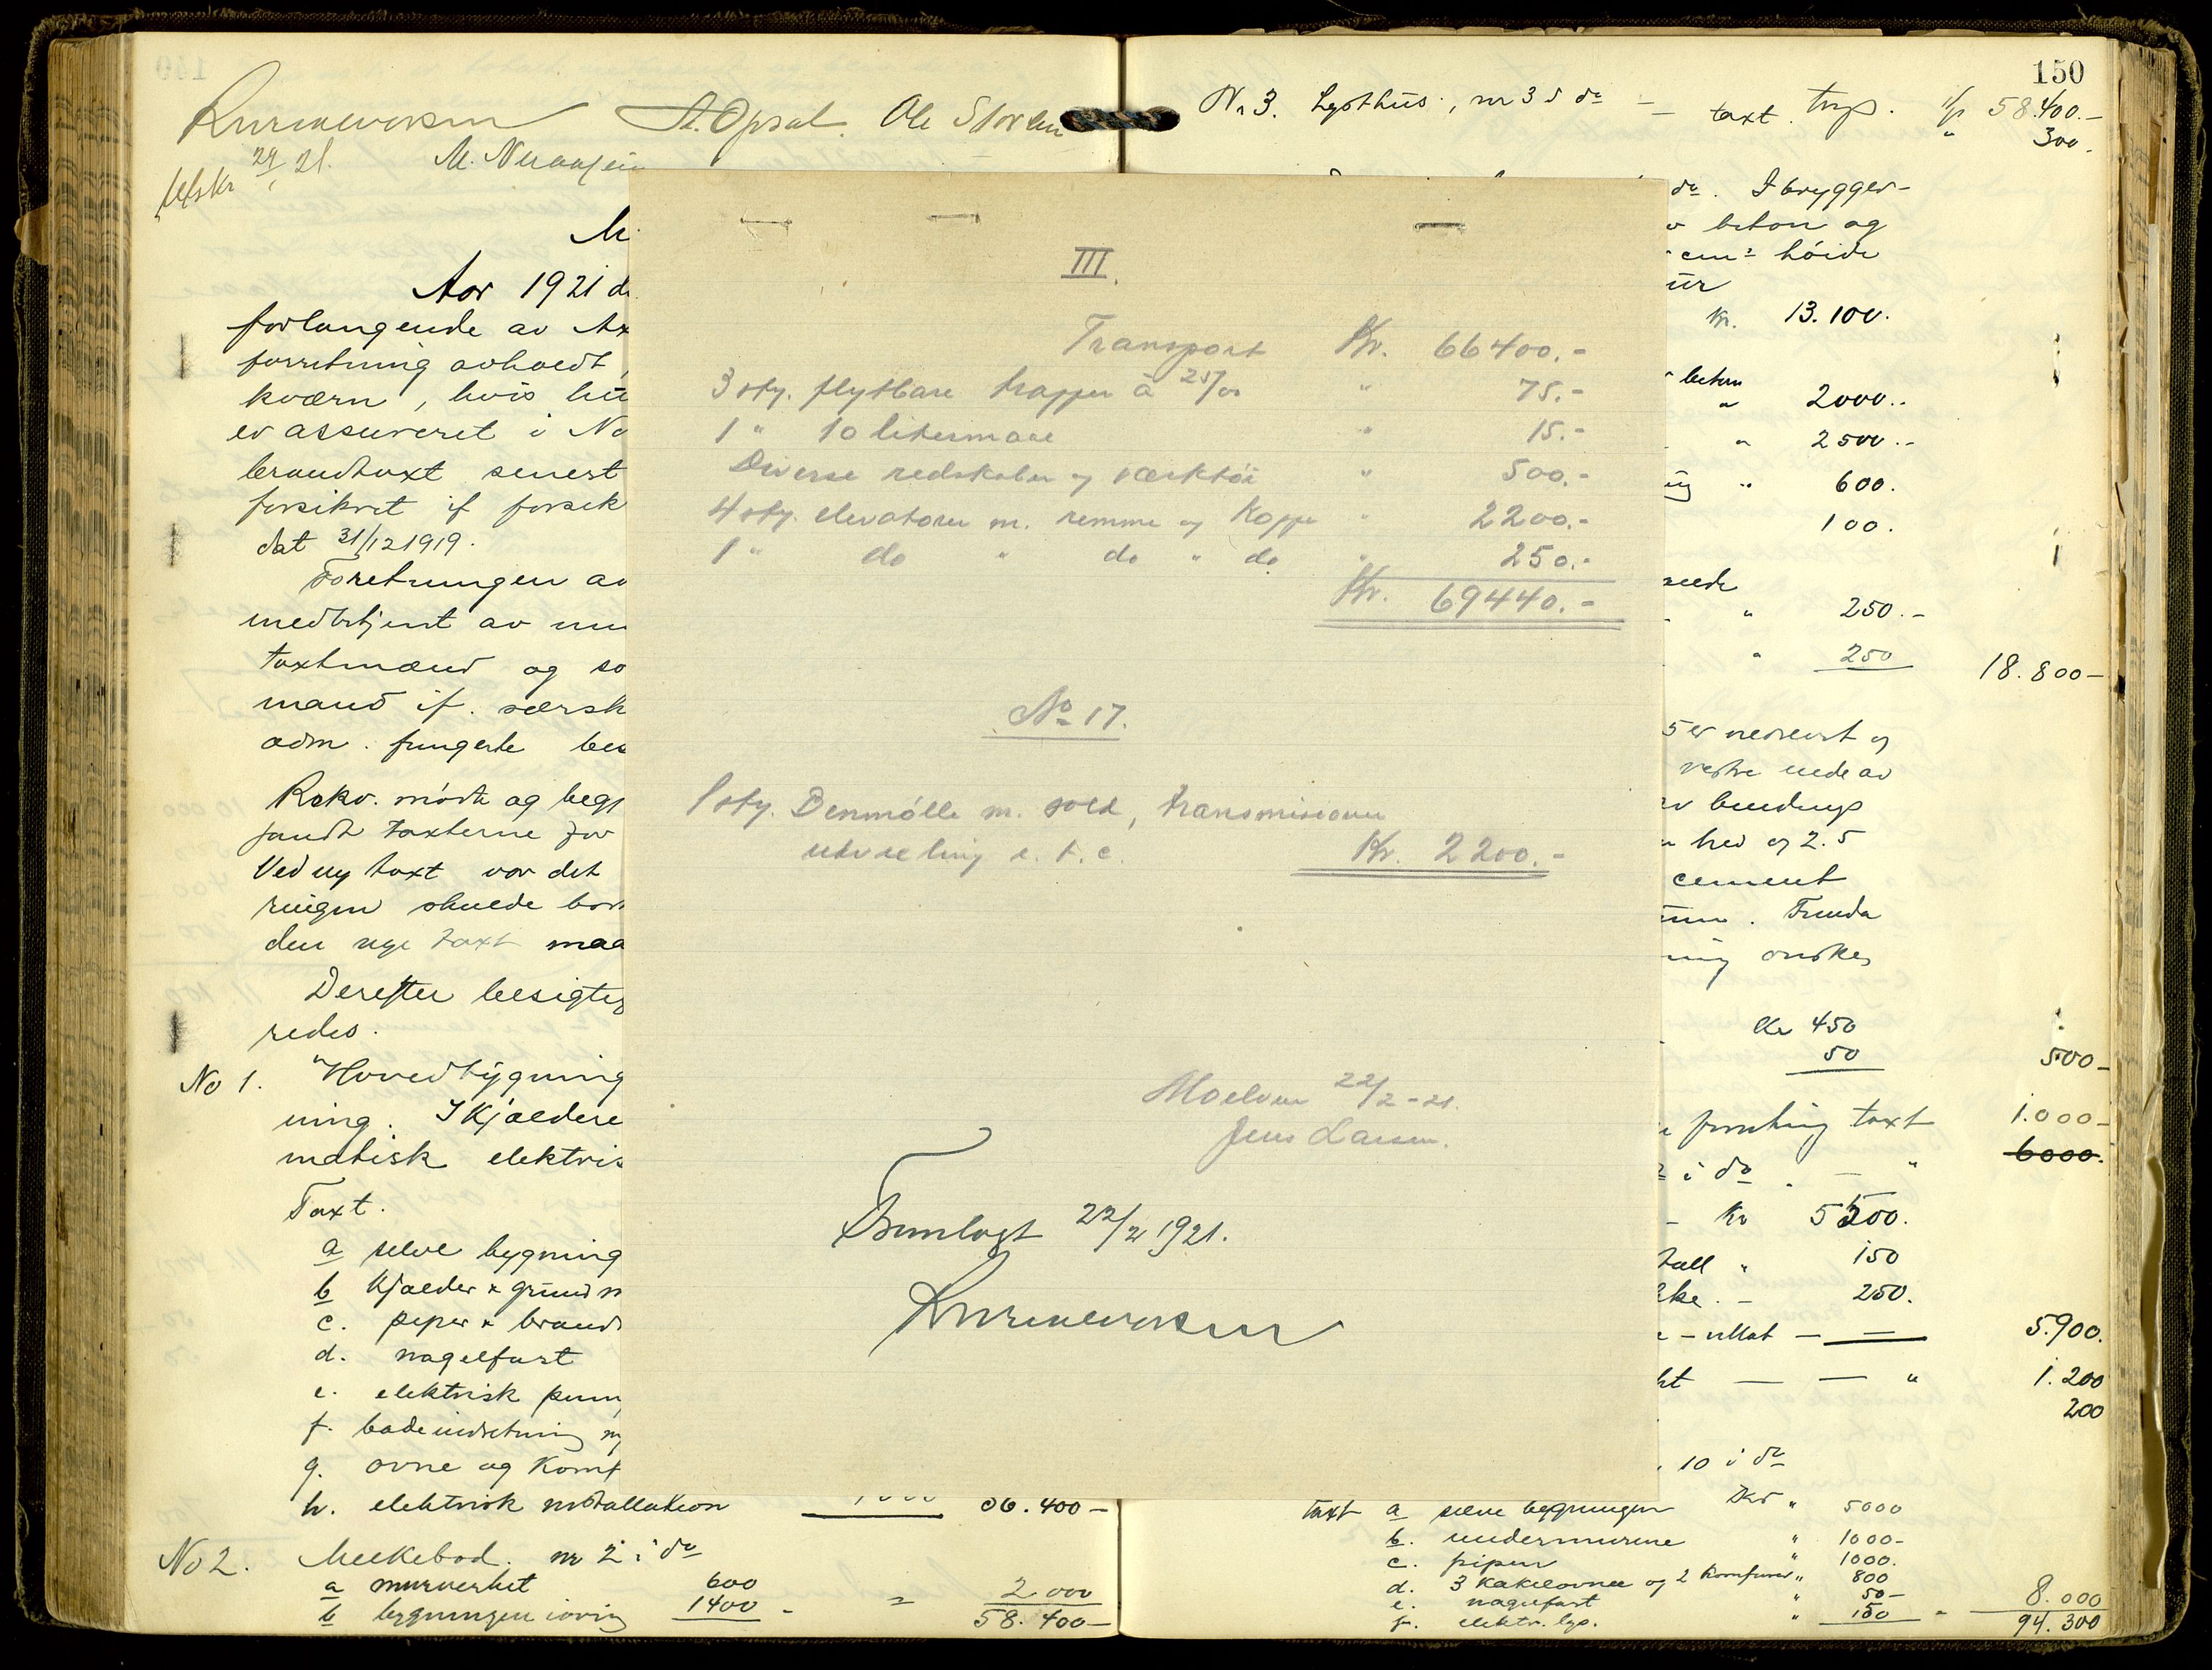 150
A. Opsal. Ole Storlien
29/1 21.
Aar 1921 d
forlangende av Ax
forretning avholdt,
kværn, hvis
er assureret i No
brandtaxt senest
forsikret if forsik
dat 31/12 1919.
Forretningen av
medbetjent av
taxtmænd og so
mand if. særsk
adm. fungerte bes
Rekv. møtte og begj
fandt taxterne for
Ved ny taxt var det
ringen skulde bort
den nye taxt maa
Derefter besigtig
redes.
No 1. "Hovedbygning
ning. I Kjældere
matisk elektris
Taxt.
a selve bygning
b Kjælder & grundm
c. piper & brand
d. nagelfast
e. elektrisk pum
f. badeindretning m
g. ovne og Komf
h. elektrisk installation 56.400-
No 2. Melkebod. nr 2 i do
a murverket 600
b bygningen iøvrig 1400 - = 2.000
58.400-
III.
Transport Kr. 66400.-
3 sty. flytbare trapper à 25/00 " 75.-
1 " 10 litersmaal " 15.-
Diverse redskaber og værktøi " 500.-
4 sty. elevatorer m. remme og Kopper " 2200.-
1 " do " do " do " 250.-
Kr. 69440.-
No 17.
1 sty. Benmølle m. sold, transmisioner
utveksling e.t.c. Kr. 2200.-
Moelven 22/2-21.
Jens Larsen.
Fremlagt 22/2 1921.
taxt. trsp. 58.400.-
No 3. Lysthus, nr 3 i do - " 300.
do. I brygger-
beton og
cm² høide
ur
Kr. 13.100.
beton
" 2000.-
" 2500.-
" 600.
100.
" 250.-
" 250 18.800-
5 er nedrevet og
vestre ende av
bindings
bred og 2.5
cement
ønskes
Kr 450
50 500-
forretning taxt 1.000-
i do - " 6000.
- Kr 5500.
tall " 150
kke. - 250.
5.900.
kt - - " 1.200
200
10 i do
taxt a selve bygningen " 5000
b. undermurene " 1000-
c. piper " 1000.
d. 3 Kakelovne og 2 Komfurer " 800
e. nagelfast " 50-
f. elektr. lys. " 150 - 8.000
94.300